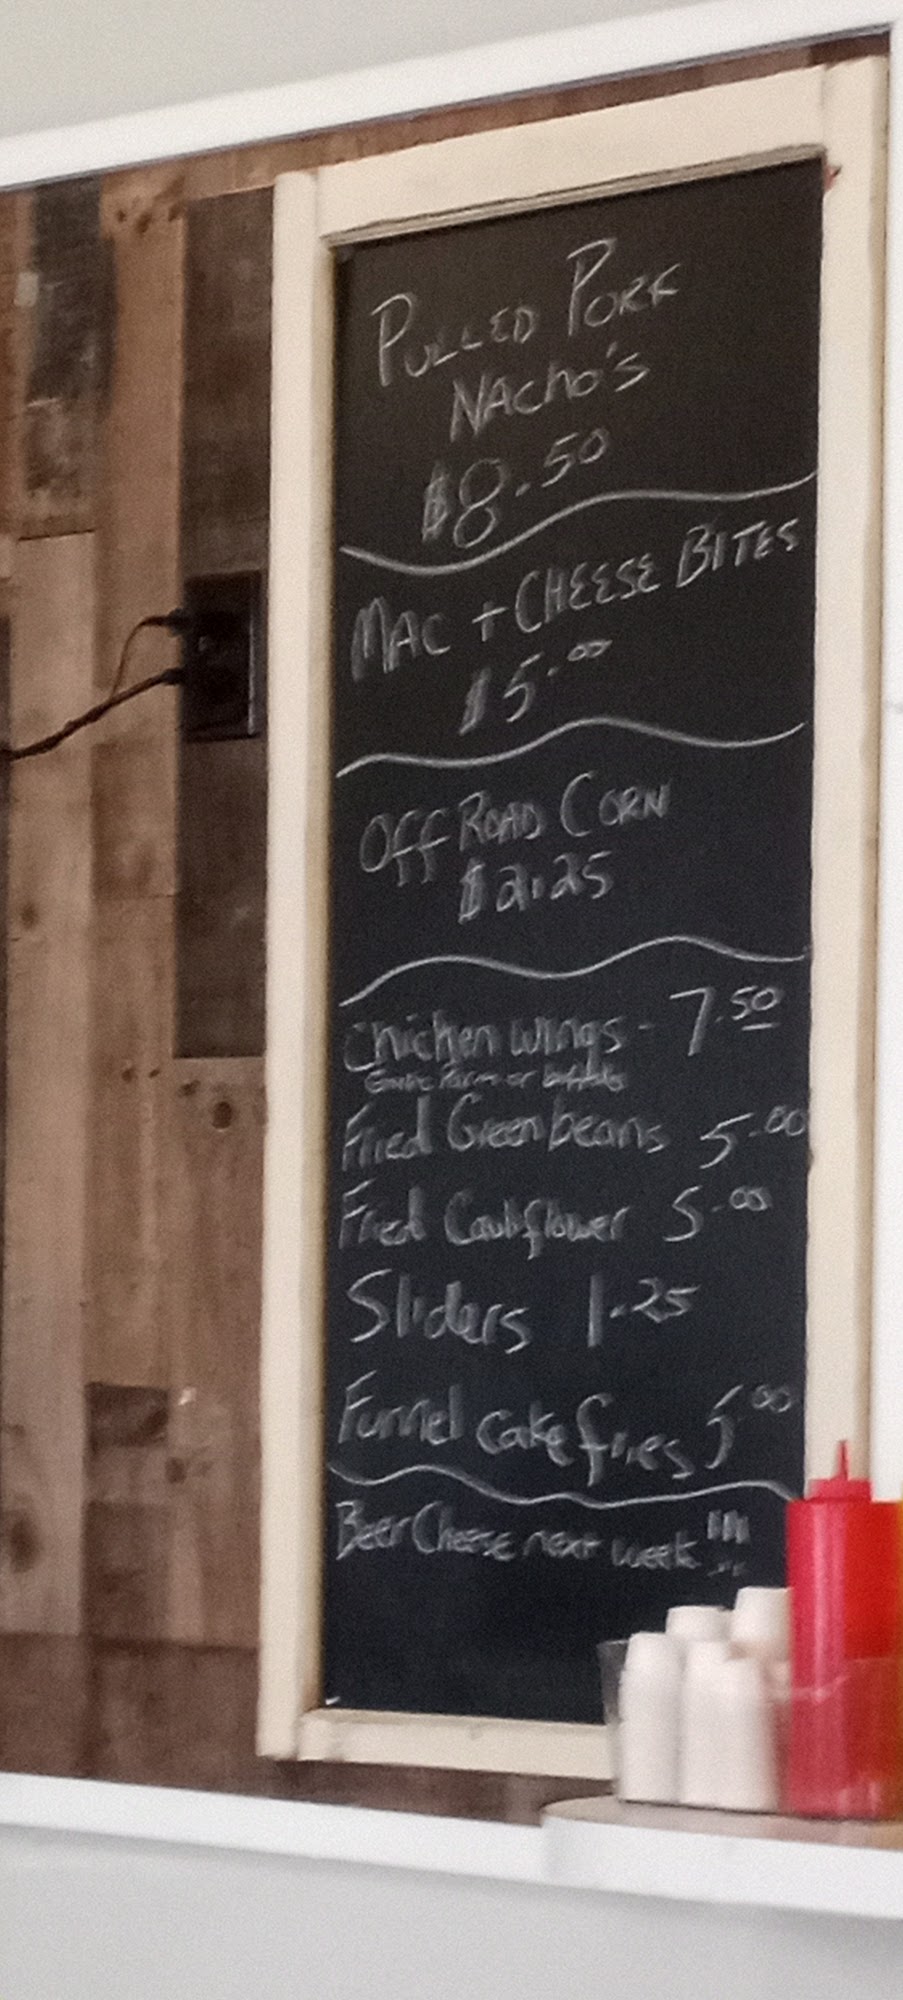 PULLED PORK
NAcho's
$8.50
MAC + CHEESE BITES
$5.00
Off ROAD CORN
$2.25
Chicken wings - 7.50
Garlic Parm or buffalo
Fried Green beans 5.00
Fried Cauliflower 5.00
Sliders 1.25
Funnel cake fries 5.00
Beer Cheese next week !!!